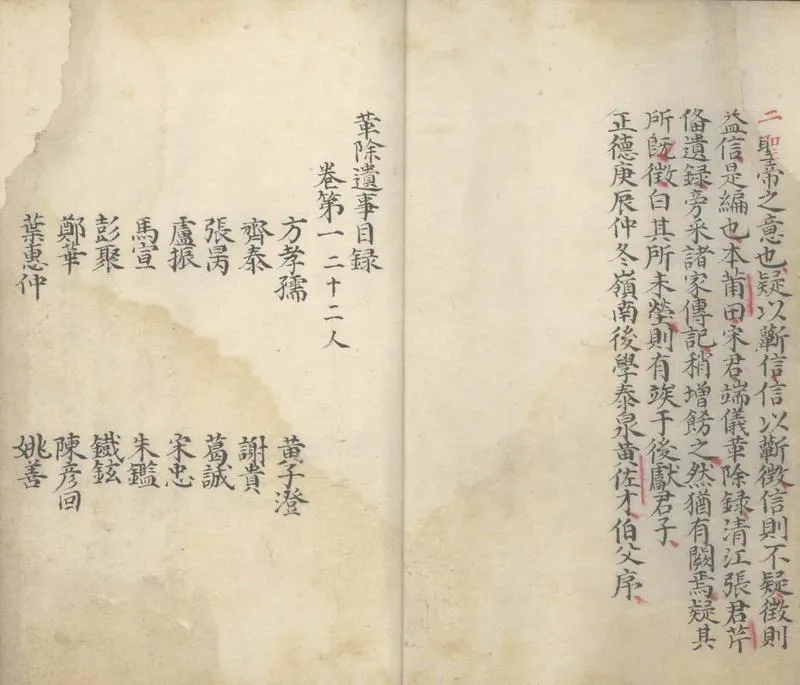 二聖帝之意也疑以蘄信信以蘄徵信則不疑徵則
益信是編也本莆田宋君端儀革除錄清江張君芹
俻遺錄旁采諸家傳記稍增餙之然猶有闕焉疑其
所旣徵白其所未瑩則有竢于後獻君子
正德庚辰仲冬嶺南後學泰泉黄佐才伯父序
革除遺事目録
卷第一 二十二人
方孝孺 黄子澄
齊泰 謝貴
張昺 葛誠
盧振 宋忠
馬宣 朱鑑
彭聚 鐵鉉
鄭華 陳彦回
葉惠仲 姚善